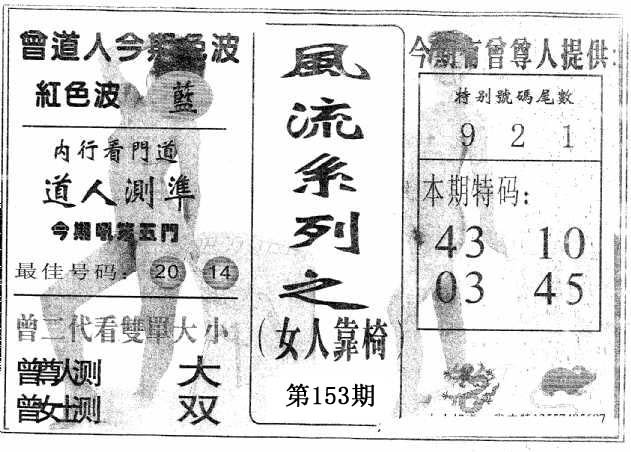 曾道人今期色波
紅色波 藍
内行看門道
道人測準
今期吼第五門
最佳号码: 20 14
曾二代看雙單大小
曾尊人测 大
曾女士测 双
風流系列之
(女人靠椅)
第153期
今期有曾尊人提供:
特别號碼尾數
9 2 1
本期特码:
43 10
03 45